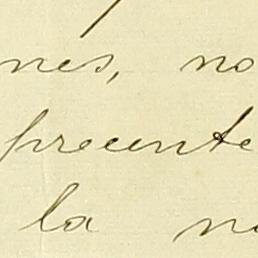 nes, no
precente
la